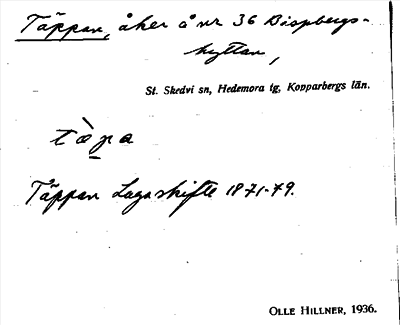 Täppan, åker å nr 36 Bispbergs-
hyttan,
St. Skedvi sn, Hedemora tg, Kopparbergs län.
tæ̀pa
Täppan Laga skifte 1871-79.
OLLE HILLNER, 1936.